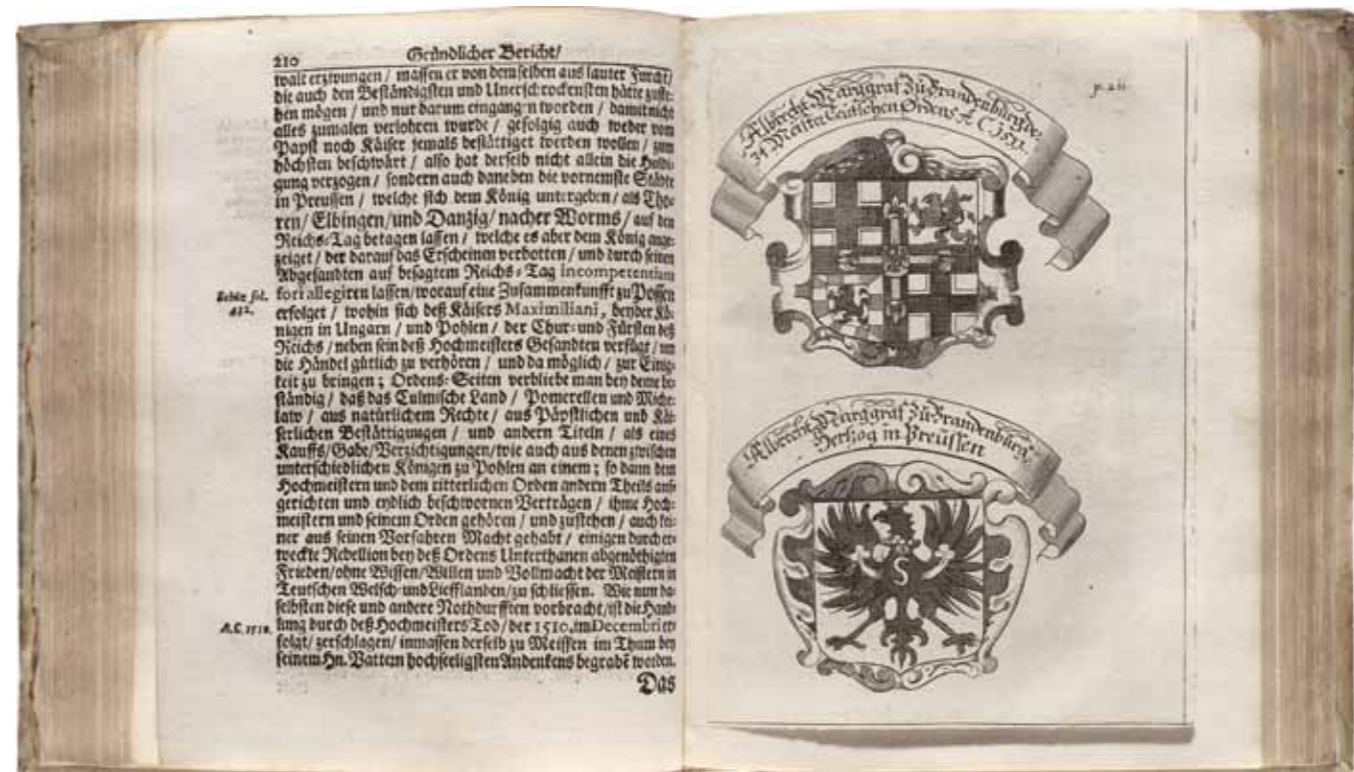 210 Gründlicher Bericht/
walt erzwungen / massen er von demselben aus lauter Furcht/
die auch den Beständigsten und Unerschrockensten hätte zuste-
hen mögen / und nur darum eingangen worden / damit nicht
alles zumalen verlohren wurde / gefolgig auch weder vom
Papst noch Käiser jemals bestättiget werden wollen / zum
höchsten beschwärt / also hat derselb nicht allein die Huldi-
gung verzogen / sondern auch daneben die vornemste Städte
in Preussen / welche sich dem König untergeben / als Tho-
ren/ Elbingen/ und Danzig/ nacher Worms / auf den
Reichs-Tag betagen lassen / welche es aber dem König ange-
zeiget / der darauf das Erscheinen verbotten / und durch seinen
Abgesandten auf besagtem Reichs-Tag incompetentiam
fori allegiren lassen/ worauf eine Zusammenkunfft zu Possen
Schütz fol.
432.
erfolget / wohin sich deß Käisers Maximiliani, beyder Kö-
nigen in Ungarn / und Pohlen / der Chur- und Fürsten deß
Reichs / neben sein deß Hochmeisters Gesandten verfügt / um
die Händel gütlich zu verhören / und da möglich / zur Einig-
keit zu bringen ; Ordens-Seiten verbliebe man bey deme be-
ständig / daß das Culmische Land / Pomerellen und Miche-
law / aus natürlichem Rechte / aus Päpstlichen und Käi-
serlichen Bestättigungen / und andern Titeln / als eines
Kauffs/ Gabe/ Verzichtigungen/ wie auch aus denen zwischen
unterschiedlichen Königen zu Pohlen an einem ; so dann dem
Hochmeistern und dem ritterlichen Orden andern Theils auf-
gerichten und eydlich beschwornen Verträgen / ihme Hoch-
meistern und seinem Orden gehören / und zustehen / auch kei-
ner aus seinen Vorfahren Macht gehabt / einigen durch er-
weckte Rebellion bey deß Ordens Unterthanen abgenöthigten
Frieden/ ohne Wissen/ Willen und Vollmacht der Meistern in
Teutschen Welsch- und Liefflanden/ zu schliessen. Wie nun da-
selbsten diese und andere Nothdurfften vorbracht/ ist die Hand-
A.C. 1510.
lung durch deß Hochmeisters Tod/ der 1510. im Decembri er-
folgt/ zerschlagen/ inmassen derselb zu Meissen im Thum bey
seinem Hn. Vattern hochseeligsten Andenkens begrabē worden.
Das
p. 211.
Albrecht Marggraf Zu Brandenburg der
34 Meister Teutschen Ordens A. C.
Albrecht Marggraf Zu Brandenburg,
Hertzog in Preussen
S